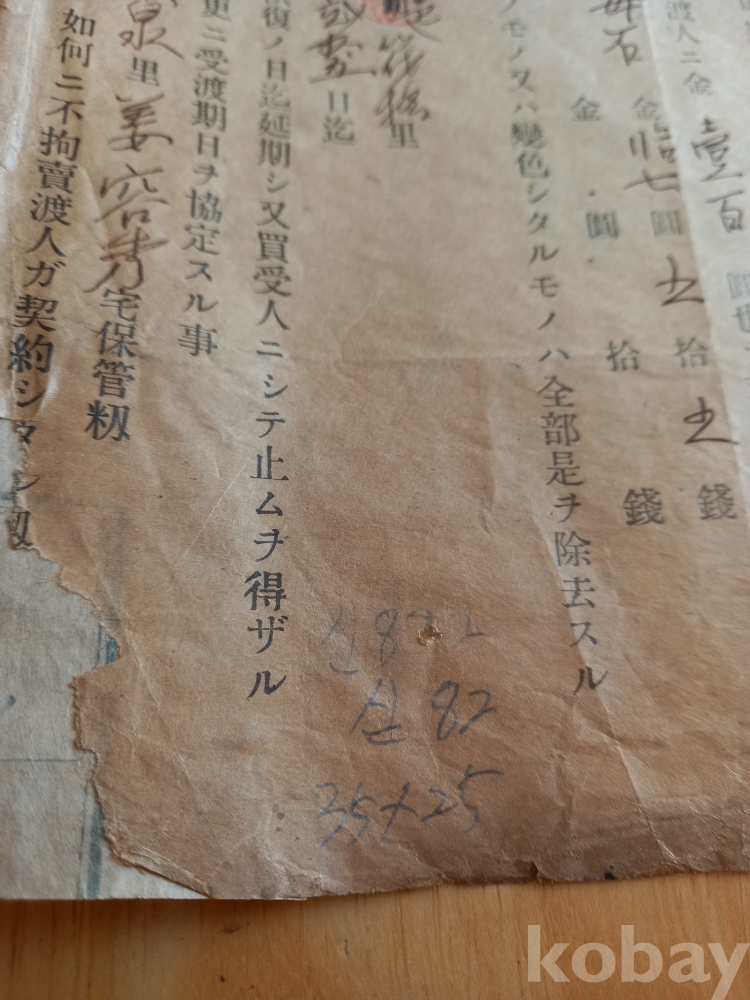 渡人ニ金壹百圓
毎石金拾七圓五拾五錢
金 圓 拾 錢
ノモノ又ハ變色シタルモノハ全部是ヲ除去スル
里
日迄
復ノ日迄延期シ又買受人ニシテ止ムヲ得ザル
更ニ受渡期日ヲ協定スル事
泉里姜容秀宅保管籾
如何ニ不拘賣渡人ガ契約シタル籾
산 82
35+25
kobay